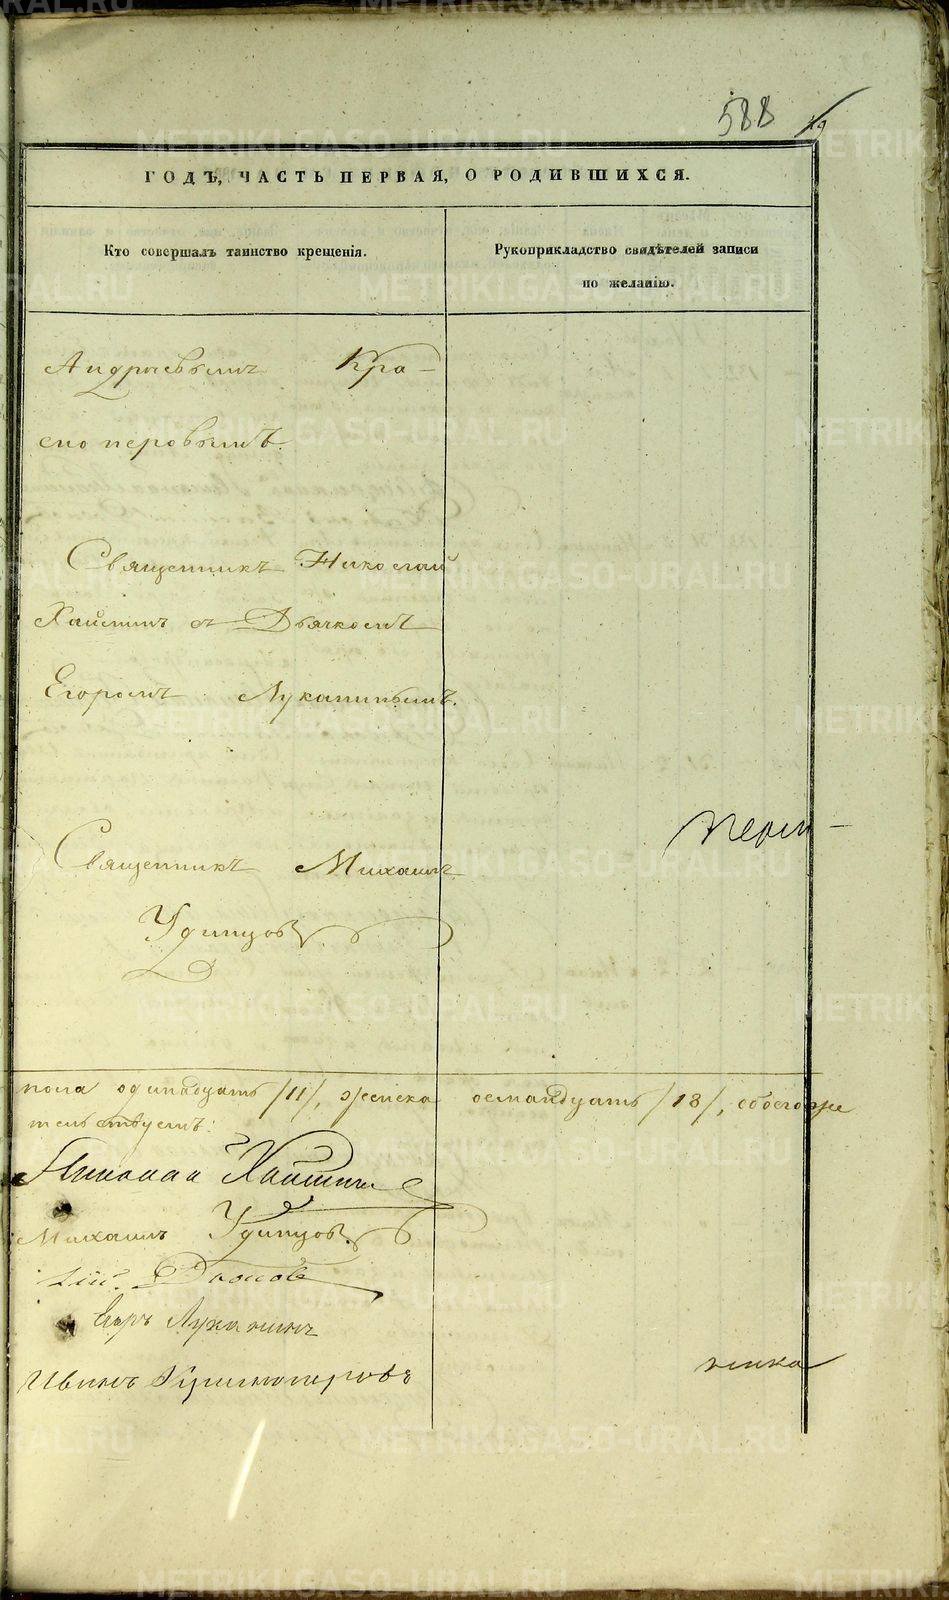 588
ГОДЪ, ЧАСТЬ ПЕРВАЯ, О РОДИВШИХСЯ.
Кто совершалъ таинство крещенія.
Рукоприкладство свидѣтелей записи
по желанію.
Андреевымъ Кра-
сноперовымъ.
Священникъ Николай
Хайминъ съ Дьячкомъ
Егоромъ Луканинымъ.
Священникъ Михаилъ
Удинцовъ.
пола одинадцать /11/, женска осмнадцать /18/, обоего же
тельствуемъ:
Николай Хайминъ
Михаилъ Удинцовъ.
Егоръ Луканинъ
Иванъ Красноперовъ
METRIKI.GASO-URAL.RU